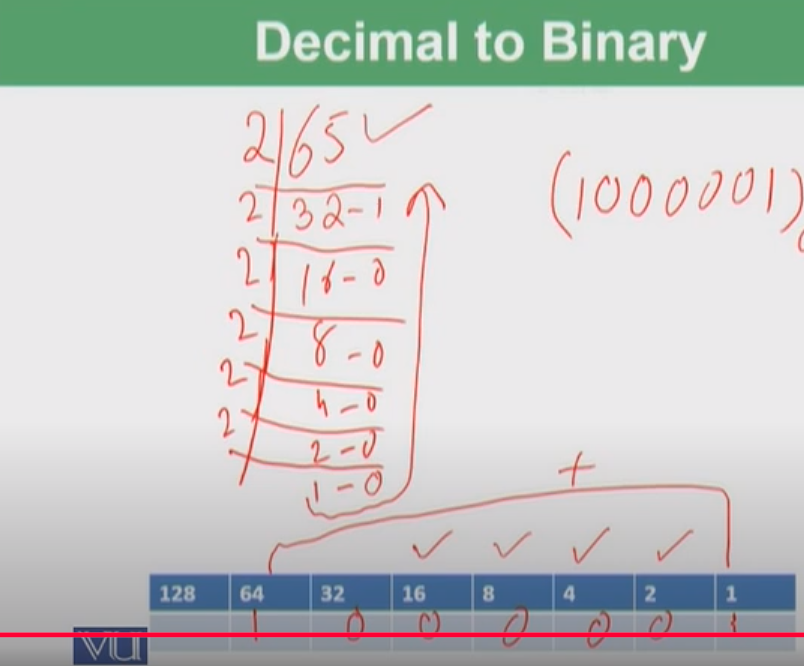 Decimal to Binary
2 65 ✓
2 32-1
2 16-0
2 8-0
2 4-0
2 2-0
1-0
(1000001)
+
✓ ✓ ✓ ✓
128 64 32 16 8 4 2 1
1 0 0 0 0 0 1
VU